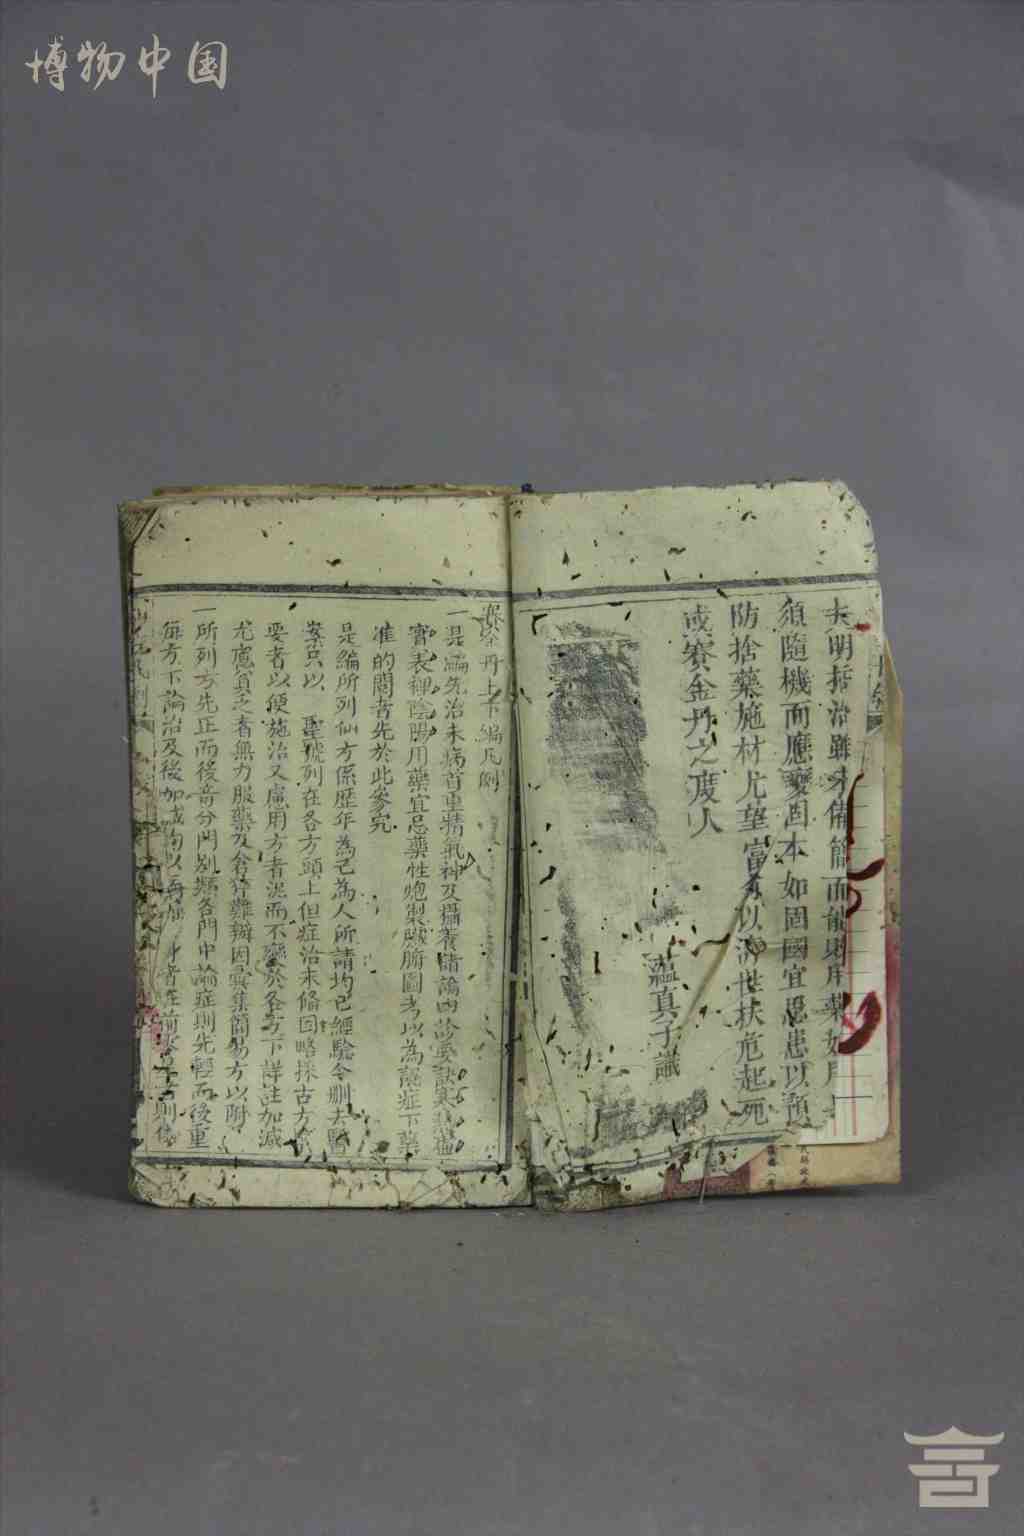 博物中国
夫明指治雖未備簡而能則用藥如用
須隨機而應變固本如固國宜思患以預
防捨藥施材尤望富乡以濟世扶危起死
或賽金丹之度人
蘊真子識
賽金丹上下編凡例
一是編先治未病首重精氣神及攝養諸論四診要訣寒熱
實表裡陰陽用藥宜忌藥性炮製臟腑圖考以為認症下藥
准的閱者先於此參究
是編所列仙方係歷年為己為人所請均已經驗今刪去醫
案只以 聖號列在各方頭上但症治未備因略採古方
要者以便施治又慮用方者泥而不變於各方下詳註加減
尤慮貧乏者無力服藥及倉猝難辦因彙集簡易方以附
一所列方先正而後奇分門別類各門中論症則先輕而後重
每方下論治及後加減均以 者在前 則